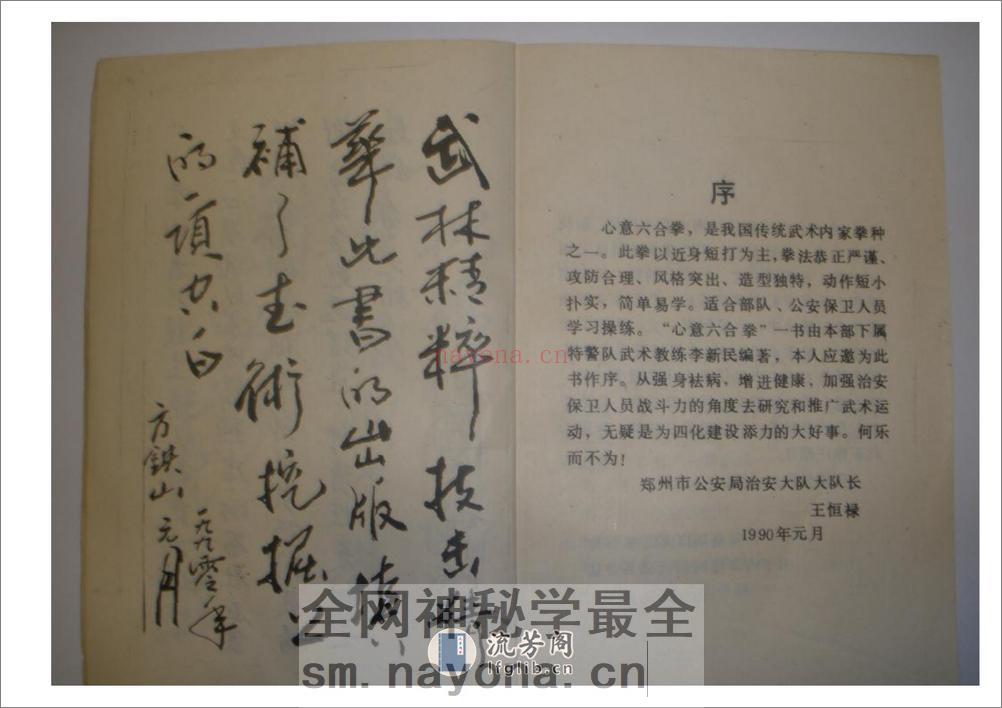 武林精粹技击
華此書的出版
補了武術挖掘上
的一項空白
方鉄山
一九九零年
元月
序
心意六合拳,是我国传统武术内家拳种
之一。此拳以近身短打为主,拳法恭正严谨、
攻防合理、风格突出、造型独特,动作短小
扑实,简单易学。适合部队、公安保卫人员
学习操练。“心意六合拳”一书由本部下属
特警队武术教练李新民编著,本人应邀为此
书作序。从强身祛病,增进健康,加强治安
保卫人员战斗力的角度去研究和推广武术运
动,无疑是为四化建设添力的大好事。何乐
而不为!
郑州市公安局治安大队大队长
王恒禄
1990年元月
nayona.cn
全网神秘学最全
流芳阁
lfglib.cn
sm.nayona.cn